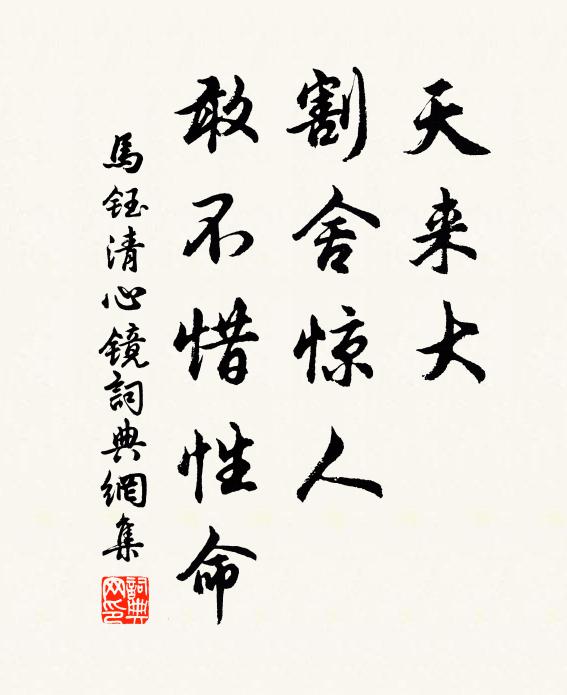 天来大
割舍惊人
敢不惜性命
馬钰清心镜詞典網集
詞典网印